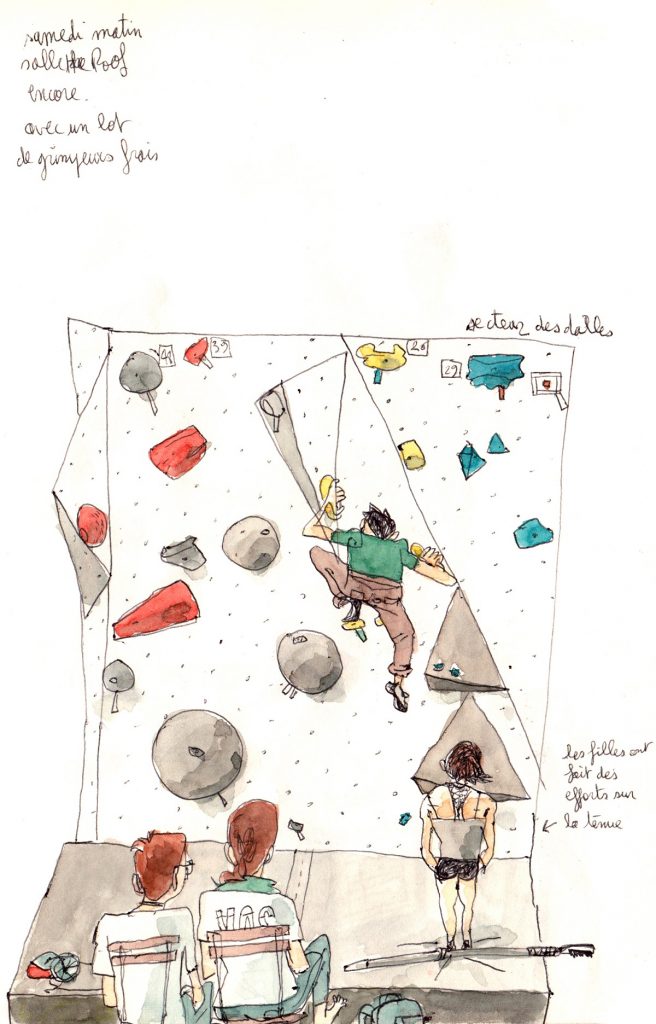 samedi matin
salle the Roof
encore.
avec un lot
de grimpeurs frais
secteur des dalles
41
39
28
29
les filles ont
fait des
efforts sur
la tenue
MAC